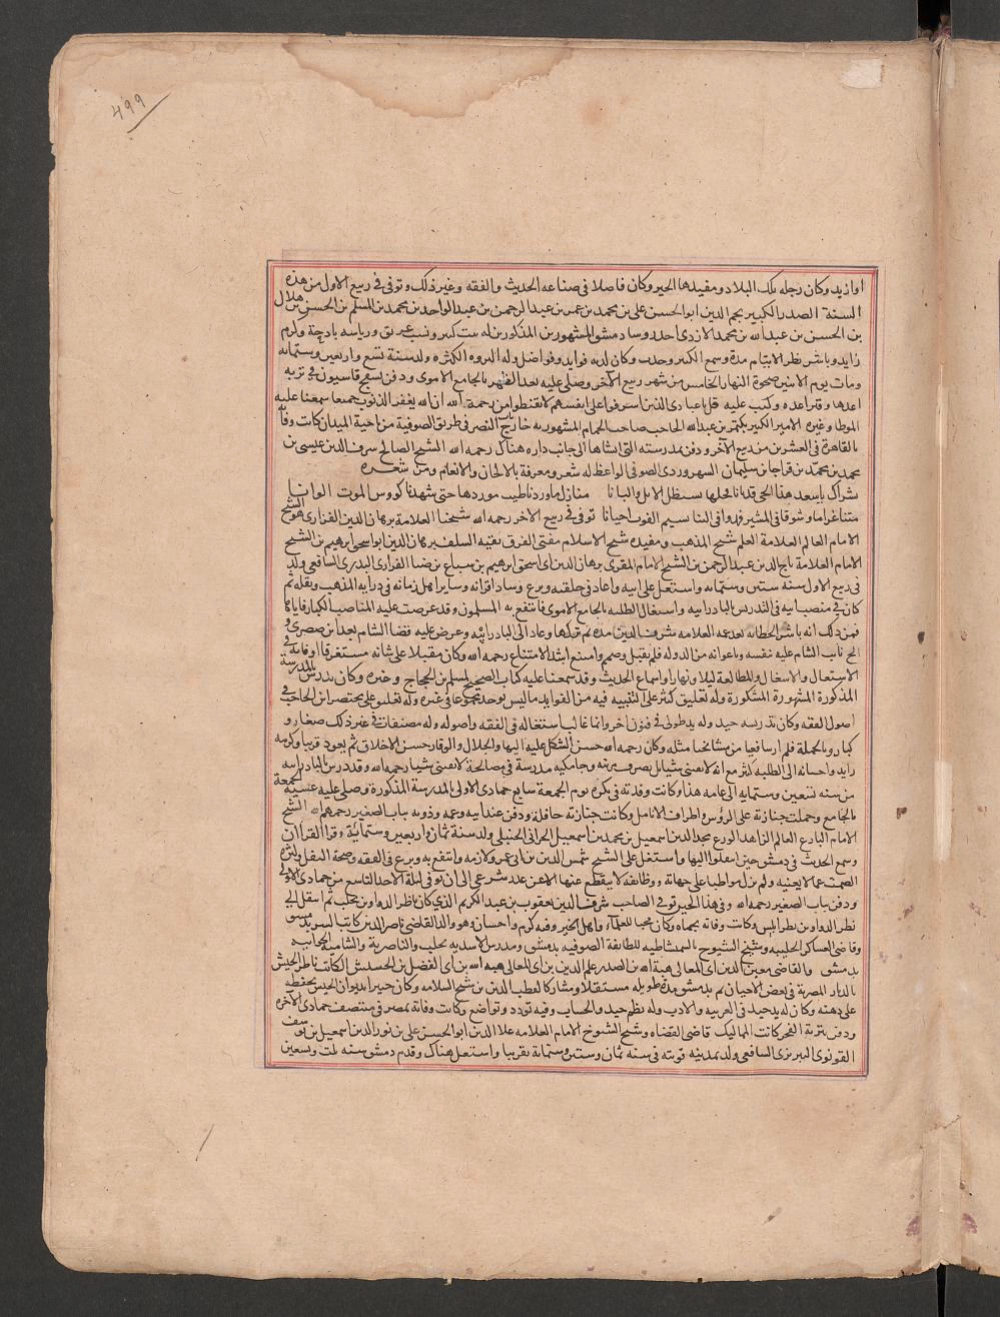 ٤٩٩
او ازيد وكان رحله تلك البلاد ومفيدها الخير وكان فاضلا فى صناعه الحديث والفقه وغير ذلك وتوفى فى ربيع الاول من هذه
السنة الصدر الكبير نجم الدين ابو الحسن على بن محمد بن عمر بن عبد الرحمن بن عبد الواحد بن محمد بن المسلم بن الحسن بن هلال
بن الحسن بن عبد الله بن محمد الازدى احد روسا دمشق المشهورين المذكورين له بيت كبير ونسب عريق ورياسه باذخة وكرم
زايد وباشر نظر الايتام مدة وسمع الكثير وحدث وكان لديه فوايد وفواضل وله الثروه الكثيره ولد سنة تسع واربعين وستمائه
ومات يوم الاثنين ضحوة النهار الخامس من شهر ربيع الآخر وصلى عليه بعد الظهر بالجامع الاموى ودفن بسفح قاسيون فى تربه
اعدها وقبر اعده وكتب عليه قل يا عبادى الذين اسرفوا على انفسهم لا تقنطوا من رحمة الله ان الله يغفر الذنوب جميعا سمعنا عليه
الموطا وغيره الامير الكبير بكتمر بن عبد الله الحاجب صاحب الحمام المشهور به خارج باب النصر فى طريق الصوفية من ناحية الميدان كانت وفا
بالقاهرة فى العشرين من ربيع الآخر ودفن بمدرسته التى انشاها الى جانب داره هناك رحمه الله الشيخ الصالح شرف الدين عيسى بن
محمد بن محمد بن قراجا بن سليمان السهروردى الصوفى الواعظ له شعر ومعرفة بالالحان والانغام ومن شعره
بشراك يا سعد هذا الحى قد بانا منازل ما وردنا طيب موردها حتى شهدنا كووس الموت الوانا
متنا غراما وشوقا فى المسير فمذ وافى الينا نسيم القرب احيانا توفى فى ربيع الاخر رحمه الله شيخنا العلامة برهان الدين الفزارى هو الشيخ
الامام العالم العلامة العلم شيخ المذهب ومفيده شيخ الاسلام مفتى الفرق بقيه السلف برهان الدين ابو اسحق ابرهيم بن الشيخ
الامام العلامة تاج الدين عبد الرحمن بن الشيخ الامام المقرى برهان الدين ابى اسحق ابرهيم بن سباع بن ضيا الفزارى البدرى الشافعى ولد
فى ربيع الاول سنه ستين وستمائه واشتغل على ابيه واعاد فى حلقته وبرع وساد اقرانه وساير اهل زمانه فى درايه المذهب ونقله ثم
كان فى منصب ابيه فى التدريس بالبادرايه واشتغال الطلبه بالجامع الاموى فانتفع به المسلمون وقد عرضت عليه المناصب الكبار فاباها
فمن ذلك انه باشر الخطابه بعد عمه العلامه شرف الدين مدة ثم تركها وعاد الى البادرائيه وعرض عليه قضا الشام بعد ابن صصرى و
الح نايب الشام عليه بنفسه وباعوانه من الدوله فلم يقبل وصمم وامتنع اشد الامتناع رحمه الله وكان مقبلا على شانه مستغرقا اوقاته فى
الاشتغال والاشغال والمطالعة ليلا ونهارا واسماع الحديث وقد سمعنا عليه كتاب الصحيح لمسلم بن الحجاج وغيره وكان يدرس بالمدرسة
المذكورة المشهورة المشكورة وله تعليق كثير على التنبيه فيه من الفوايد ما ليس يوجد مجموعا فى غيره وله تعليق على مختصر ابن الحاجب فى
اصول الفقه وكان تدريسه جيد وله يد طولى فى فنون اخر وانما غالب اشتغاله فى الفقه واصوله وله مصنفات فى غير ذلك صغار و
كبار وبالجملة فلم ار شافعيا من مشايخنا مثله وكان رحمه الله حسن الشكل عليه البها والجلال والوقار حسن الاخلاق ثم يعود قريبا وكرمه
زايد واحسانه الى الطلبه كثير مع انه لا يقتنى شيا بل يصرف مرتبه وجامكيه مدرسة فى مصالحه لا يقتنى شيا رحمه الله وقد درس بالبادرايه
من سنه تسعين وستمايه الى عامه هذا وكانت وفاته فى بكره يوم الجمعة سابع جمادى الاولى بالمدرسة المذكورة وصلى عليه عقيب الجمعة
بالجامع وحملت جنازته على الرؤس واطراف الانامل وكانت جنازته حافلة ودفن عند ابيه وعمه وذويه بباب الصغير رحمهم الله الشيخ
الامام البارع العالم الزاهد الورع مجد الدين اسمعيل بن محمد بن اسمعيل الحرانى الحنبلى ولد سنة ثمان واربعين وستمائة وقرا القران
وسمع الحديث فى دمشق حين انتقلوا اليها واشتغل على الشيخ شمس الدين بن ابى عمر ولازمه وانتفع به وبرع فى الفقه وصحة النقل وكثرة
الصمت عما لا يعنيه ولم يزل مواظبا على جهاته ووظائفه لا ينقطع عنها الا عن عذر شرعى الى ان توفى ليلة الاحد التاسع من جمادى الاولى
ودفن بباب الصغير رحمه الله وفى هذا الحين توفى الصاحب شرف الدين يعقوب بن عبد الكريم الذى كان ناظر الدواوين بحلب ثم انتقل الى
نظر الدواوين بطرابلس وكانت وفاته بحماه وكان محبا للعلماء واهل الخير وفيه كرم واحسان وهو والد القاضى ناصر الدين كاتب السر بدمشق
وقاضى العساكر الحلبيه وشيخ الشيوخ بالسمشاطيه للطائفة الصوفيه بدمشق ومدرس الاسديه بحلب والناصرية والشاميه الجوانيه
بدمشق والقاضى معين الدين ابى المعالى هبة الله بن الصدر علم الدين بن ابى المعالى هبه الله بن ابى الفضل بن الحشيش الكاتب ناظر الجيش
بالديار المصرية فى بعض الاحيان ثم بدمشق مدة طويله مستقلا ومشاركا لقطب الدين بن شيخ السلامه وكان خبيرا بديوان الجيش يحفظه
على ذهنه وكان له يد جيدة فى العربيه والادب وله نظم جيد والحساب وفيه تودد وتواضع وكانت وفاته بمصر فى منتصف جمادى الآخره
ودفن بتربة الفخر كاتب المماليك قاضى القضاه وشيخ الشيوخ الامام العلامه علا الدين ابو الحسن على بن نور الدين اسمعيل بن يوسف
القونوى التبريزى الشافعى ولد بمدينه قونيه فى سنه ثمان وستين وستمائة تقريبا واشتغل هناك وقدم دمشق سنه ثلث وتسعين